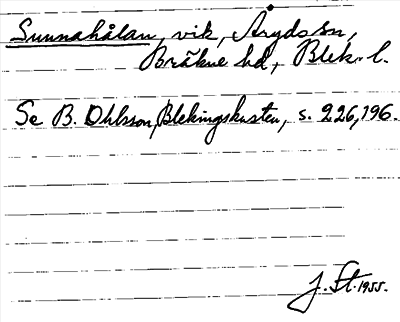 Sunnahålan, vik, Åryds sn,
Bräkne hd, Blek. l.
Se B. Ohlsson, Blekingskusten, s. 226, 196.
J. St. 1955.